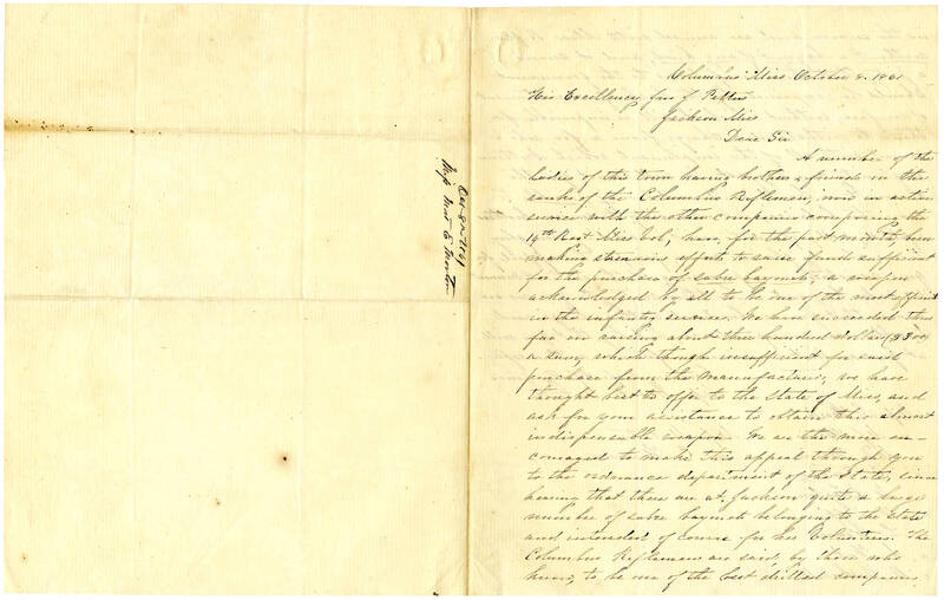 Oct 8th 1861
Miss Mat E Morton
Columbus Miss October 8. 1861
His Excellency Jno J Pettus
Jackson Miss
Dear Sir
A number of the
ladies of this town having brothers & friends in the
ranks of the Columbus Riflemen, now in active
service with the other companies composing the
14th Regt Miss Vol, have, for the past month, been
making strenuous efforts to raise funds sufficient
for the purchase of sabre bayonets; a weapon
acknowledged by all to be one of the most efficient
in the infantry service. We have succeeded thus
far in raising about three hundred dollars ($300)
a sum, which though insufficient for said
purchase from the manufacturer, we have
thought best to offer to the State of Miss, and
ask for your assistance to obtain this almost
indispensable weapon. We are the more en-
couraged to make this appeal through you
to the ordnance department of the State, since
hearing that there are at Jackson quite a large
number of sabre bayonets belonging to the State
and intended of course for her Volunteers. The
Columbus Riflemen are said, by those who
know, to be one of the best drilled companies